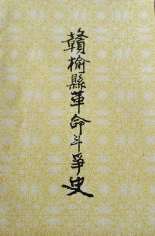 贛榆縣革命斗爭史